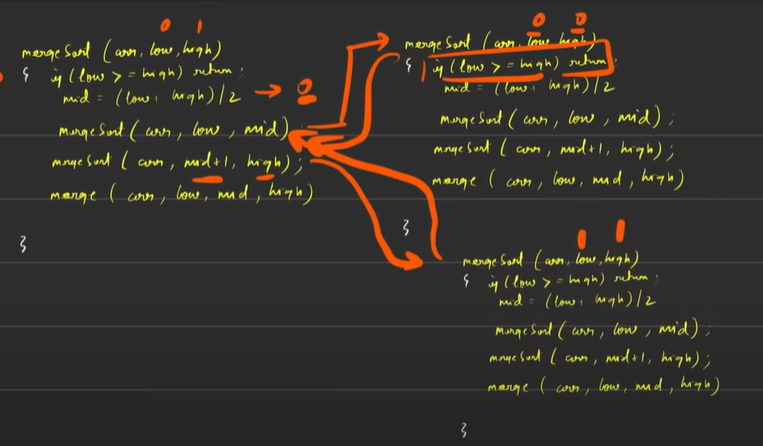 0 1
mergeSort (arr, low, high)
{ if (low >= high) return;
mid = (low + high)/2 → 0
mergeSort (arr, low, mid);
mergeSort (arr, mid+1, high);
merge (arr, low, mid, high)
}
0 0
mergeSort (arr, low, high)
{ if (low >= high) return;
mid = (low + high)/2
mergeSort (arr, low, mid);
mergeSort (arr, mid+1, high);
merge (arr, low, mid, high)
}
1 1
mergeSort (arr, low, high)
{ if (low >= high) return;
mid = (low + high)/2
mergeSort (arr, low, mid);
mergeSort (arr, mid+1, high);
merge (arr, low, mid, high)
}